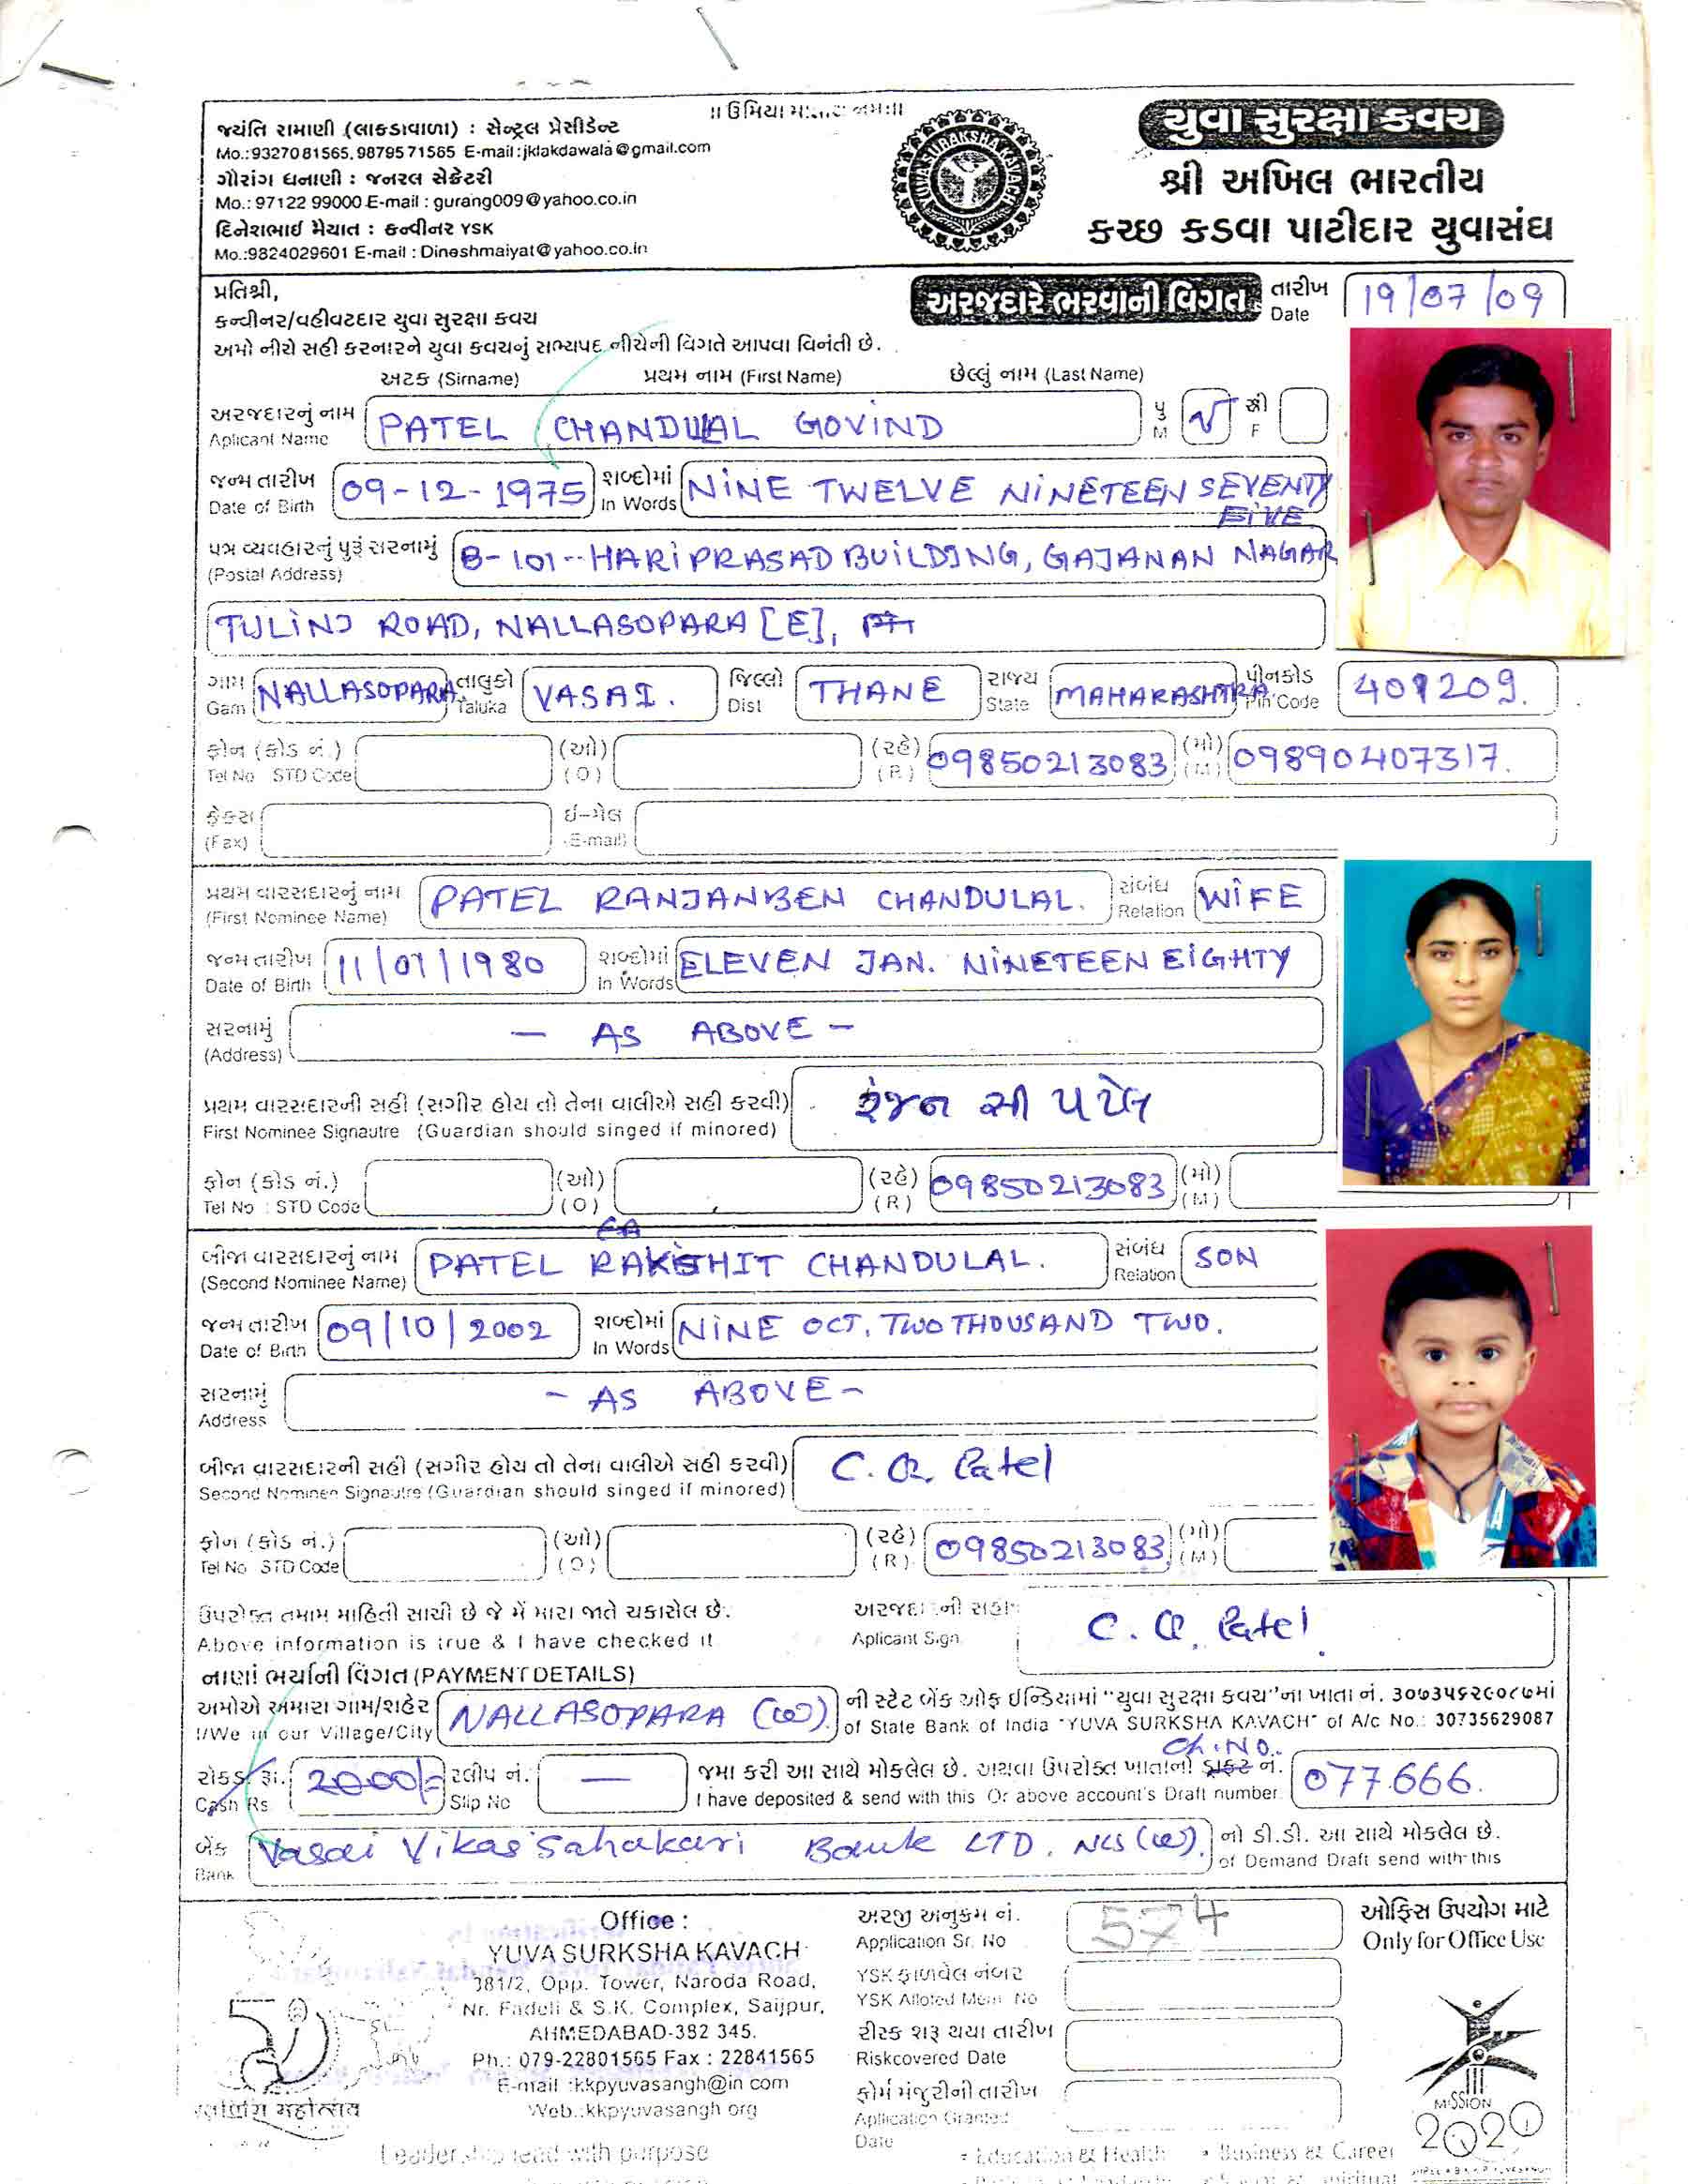 જયંતિ રામાણી (લાકડાવાળા) : સેન્ટ્રલ પ્રેસીડેન્ટ
Mo.:9327081565, 9879571565 E-mail:jklakdawala@gmail.com
ગૌરાંગ ધનાણી : જનરલ સેક્રેટરી
Mo.: 97122 99000 E-mail : gurang009@yahoo.co.in
દિનેશભાઈ મૈયાત : કન્વીનર YSK
Mo.:9824029601 E-mail : Dineshmaiyat@yahoo.co.in
YUVA SURAKSHA KAVACH
યુવા સુરક્ષા કવચ
શ્રી અખિલ ભારતીય
કચ્છ કડવા પાટીદાર યુવાસંઘ
પ્રતિશ્રી,
કન્વીનર/વહીવટદાર યુવા સુરક્ષા કવચ
અરજદારે ભરવાની વિગત
તારીખ Date 19/07/09
અમો નીચે સહી કરનારને યુવા કવચનું સભ્યપદ નીચેની વિગતે આપવા વિનંતી છે.
અટક (Sirname) પ્રથમ નામ (First Name) છેલ્લું નામ (Last Name)
અરજદારનું નામ Aplicant Name PATEL CHANDULAL GOVIND પુ M સ્ત્રી F
જન્મ તારીખ Date of Birth 09-12-1975 શબ્દોમાં In Words NINE TWELVE NINETEEN SEVENTY FIVE
પત્ર વ્યવહારનું પુરૂં સરનામું (Postal Address) B-101-HARIPRASAD BUILDING, GAJANAN NAGAR
TULINJ ROAD, NALLASOPARA [E],
ગામ Gam NALLASOPARA તાલુકો Taluka VASAI. જિલ્લો Dist THANE રાજ્ય State MAHARASHTRA પીનકોડ Pin Code 401209.
ફોન (કોડ નં.) Tel No STD Code (ઓ) (O) (રહે) (R) 09850213083 (મો) (M) 09890407317.
ફેકસ (Fax) ઈ-મેલ E-mail)
પ્રથમ વારસદારનું નામ (First Nominee Name) PATEL RANJANBEN CHANDULAL. સંબંધ Relation WIFE
જન્મ તારીખ Date of Birth 11/01/1980 શબ્દોમાં In Words ELEVEN JAN. NINETEEN EIGHTY
સરનામું (Address) — AS ABOVE —
પ્રથમ વારસદારની સહી (સગીર હોય તો તેના વાલીએ સહી કરવી) રંજન સી પટેલ
First Nominee Signautre (Guardian should singed if minored)
ફોન (કોડ નં.) Tel No : STD Code (ઓ) (O) (રહે) (R) 09850213083 (મો) (M)
બીજા વારસદારનું નામ (Second Nominee Name) PATEL RAKSHIT CHANDULAL. સંબંધ Relation SON
જન્મ તારીખ Date of Birth 09/10/2002 શબ્દોમાં In Words NINE OCT. TWO THOUSAND TWO.
સરનામું Address - AS ABOVE -
બીજા વારસદારની સહી (સગીર હોય તો તેના વાલીએ સહી કરવી) C. G. Patel
Second Nominee Signautre (Guardian should singed if minored)
ફોન (કોડ નં.) Tel No STD Code (ઓ) (O) (રહે) (R) 09850213083 (મો) (M)
ઉપરોક્ત તમામ માહિતી સાચી છે જે મેં મારા જાતે ચકાસેલ છે.
Above information is true & I have checked it Aplicant Sign C. G. Patel
નાણાં ભર્યાની વિગત (PAYMENT DETAILS)
અમોએ અમારા ગામ/શહેર NALLASOPARA (W) ની સ્ટેટ બેંક ઓફ ઈન્ડિયામાં "યુવા સુરક્ષા કવચ"ના ખાતા નં. ૩૦૭૩૫૬૨૯૦૮૭માં
I/We in our Village/City of State Bank of India "YUVA SURKSHA KAVACH" of A/c No.: 30735629087
Ch. NO.
રોકડ રૂા. 2000/- સ્લીપ નં. — જમા કરી આ સાથે મોકલેલ છે. અથવા ઉપરોક્ત ખાતાનો ડ્રાફ્ટ નં. 077666.
Cash Rs Slip No I have deposited & send with this Or above account's Draft number
બેંક Bank Vasai Vikas Sahakari Bank LTD. NLS (W). નો ડી.ડી. આ સાથે મોકલેલ છે.
of Demand Draft send with this
Office :
YUVA SURKSHA KAVACH
381/2, Opp. Tower, Naroda Road,
Nr. Fadeli & S.K. Complex, Saijpur,
AHMEDABAD-382 345.
Ph.: 079-22801565 Fax : 22841565
E-mail :kkpyuvasangh@in com
Web.:kkpyuvasangh org
અરજી અનુક્રમ નં. Application Sr. No 574
YSK ફાળવેલ નંબર YSK Alloted Mem No
રીસ્ક શરૂ થયા તારીખ Riskcovered Date
ફોર્મ મંજુરીની તારીખ Apllication Granted Date
ઓફિસ ઉપયોગ માટે
Only for Office Use
MISSION 2020
महोत्सव
Leadership lead with purpose
• Education & Health • Business & Career